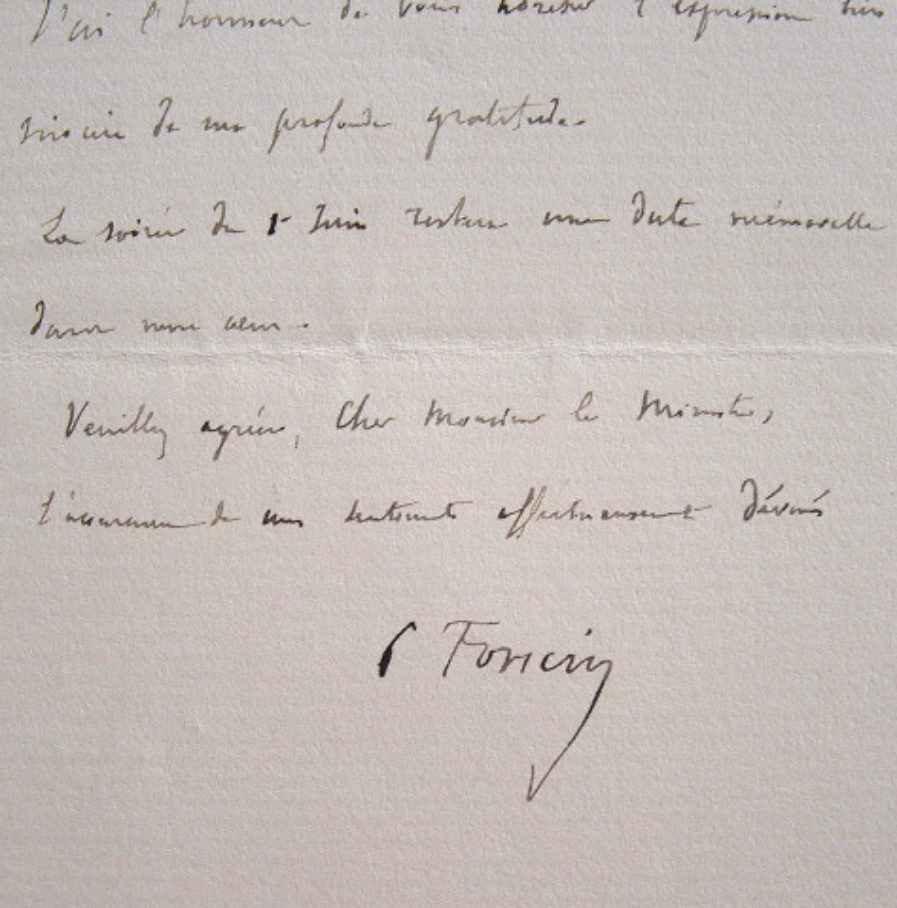 J'ai l'honneur de vous adresser l'expression bien
sincère de ma profonde gratitude.
La soirée du 1er Juin restera une date mémorable
dans mon cœur.
Veuillez agréer, Cher Monsieur le Ministre,
l'assurance de mes sentiments affectueusement dévoués